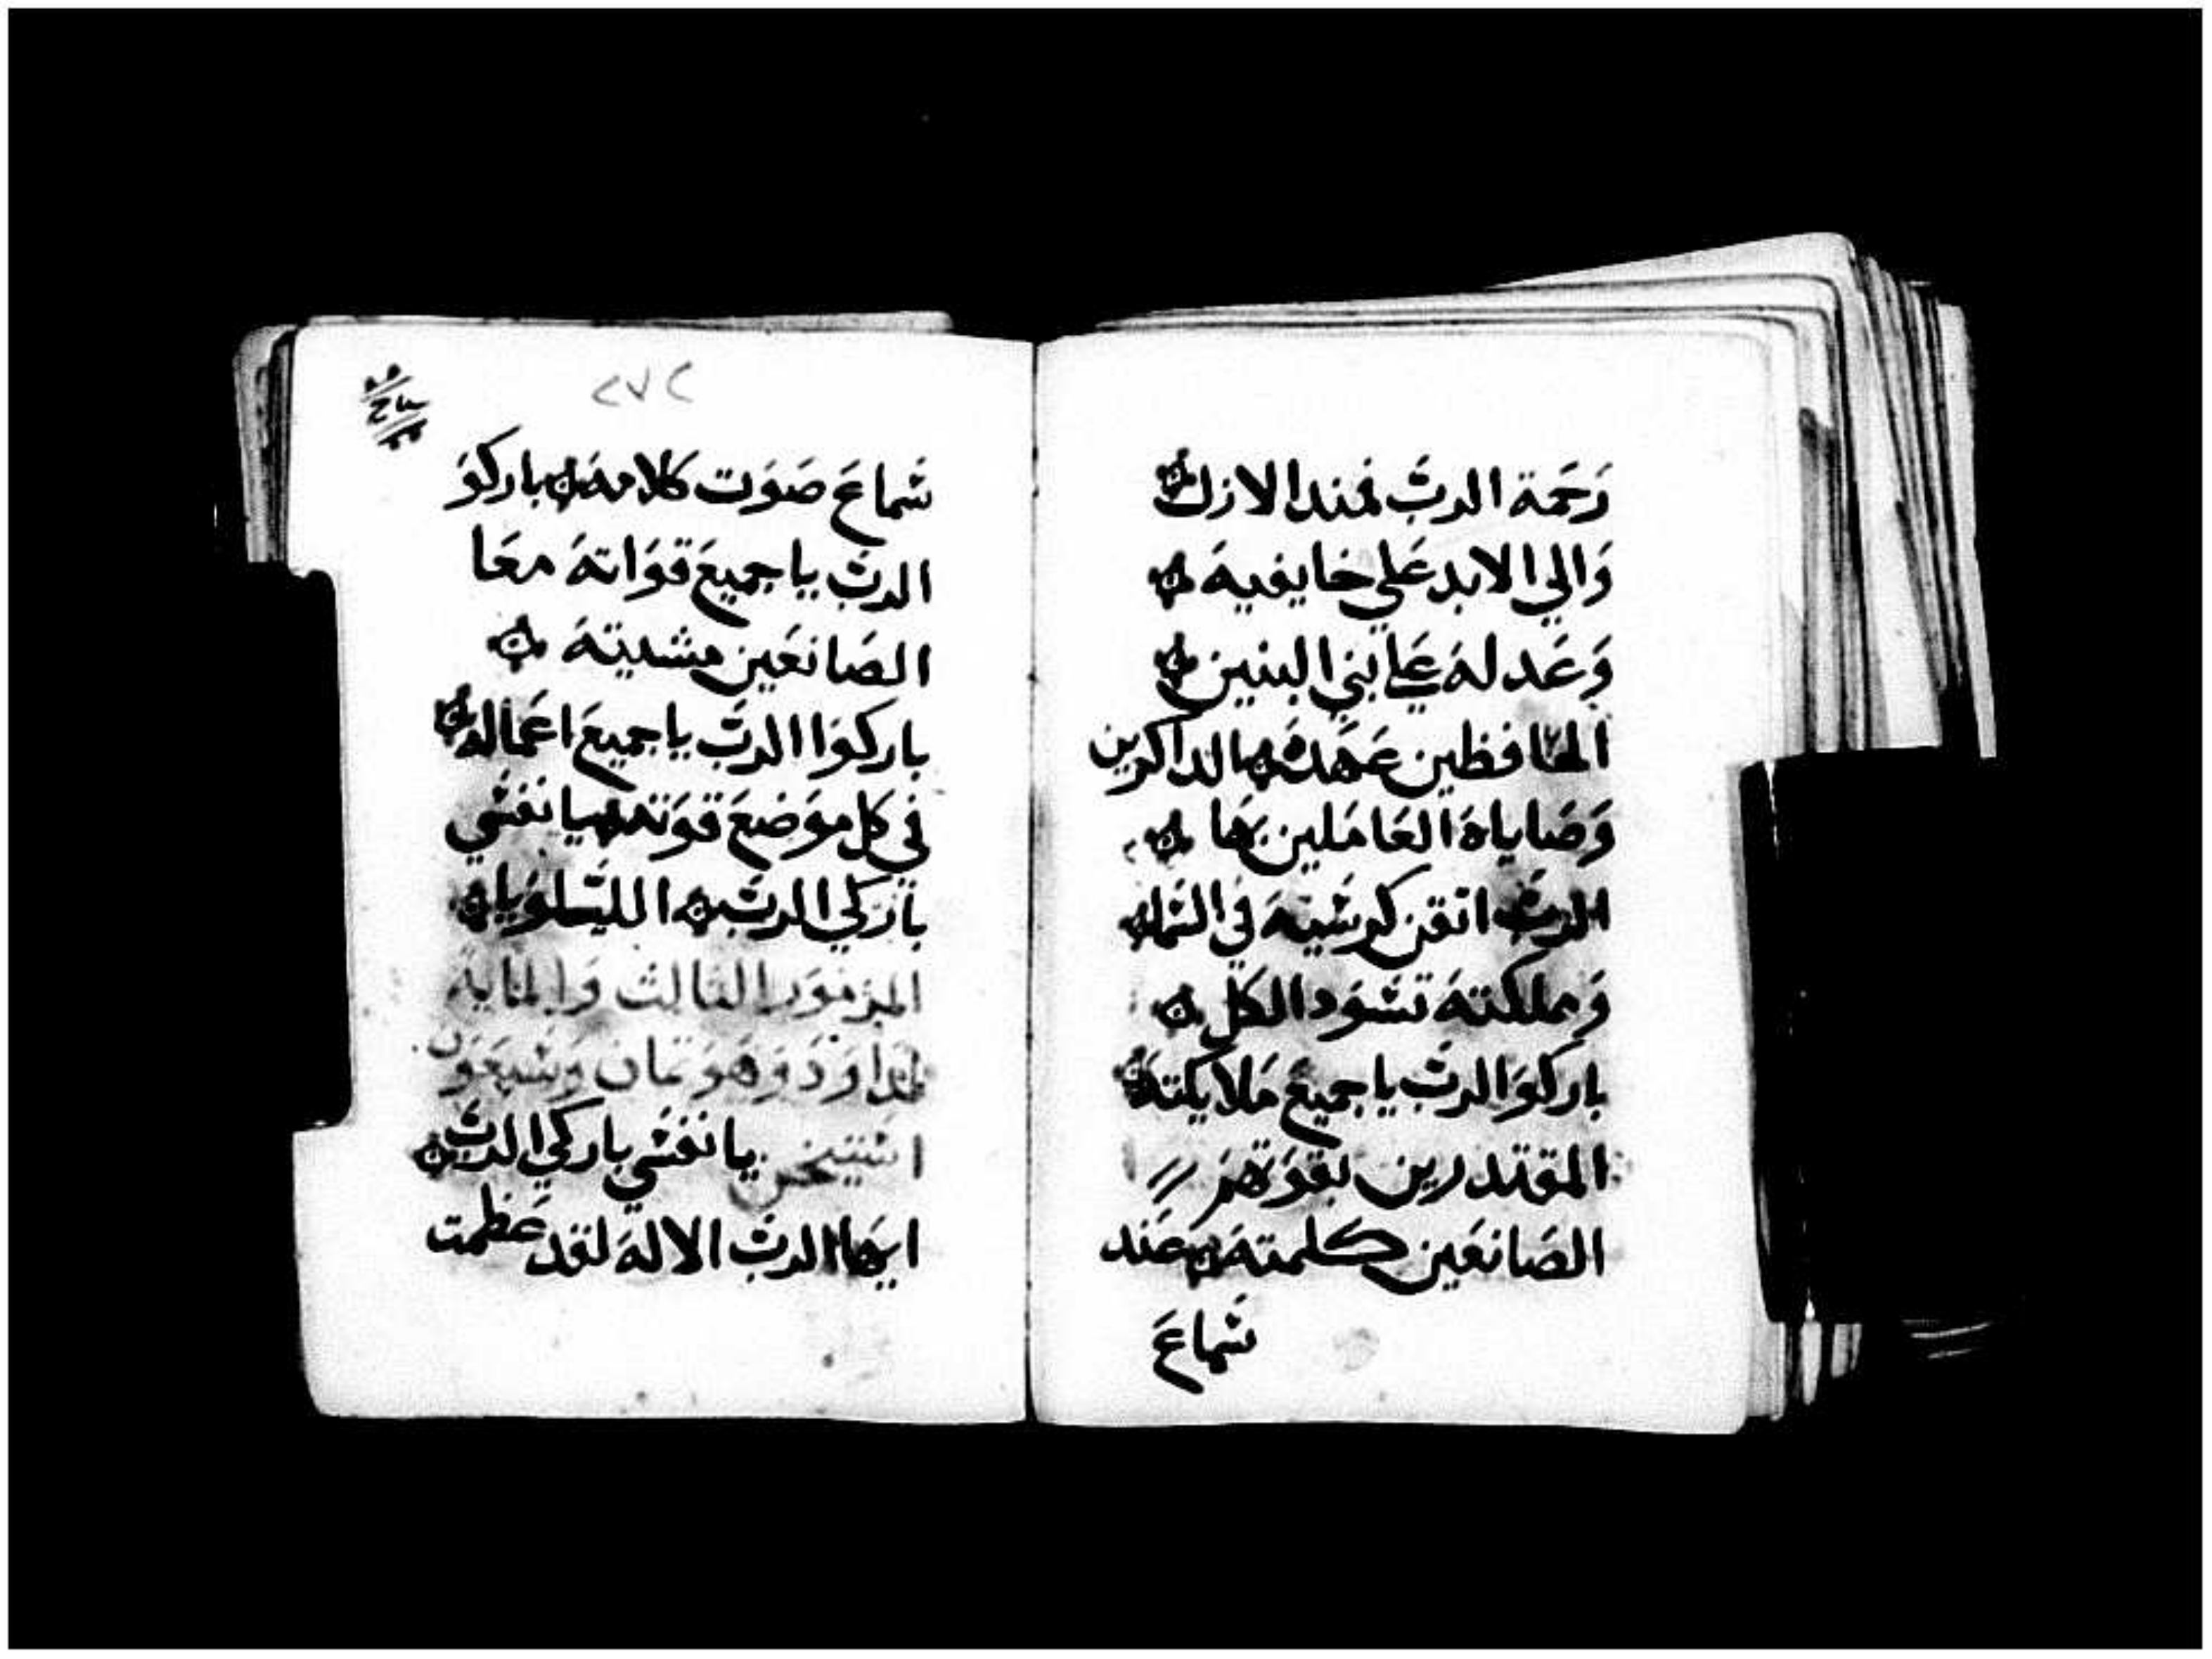 رحمة الرب فمند الازل
والي الابد علي خايفيه
وعدله علي بني البنين
الحافظين عهده الداكرين
وصاياه العاملين بها
الرب اتقن كرسيه في السما
ومملكته تسود الكل
باركوا الرب يا جميع ملايكته
المقتدرين بقوتهم
الصانعين كلمته عند
سماع
٢٧٢
سماع صوت كلامه باركو
الرب يا جميع قواته معا
الصانعين مشيته
باركوا الرب يا جميع اعماله
في كل موضع قوته يا نفسي
باركي الرب الليلويا
المزمور الثالث والمايه
لداوود وهو تمان وسبعون
استيخس يا نفسي باركي الرب
ايها الرب الاله لقد عظمت